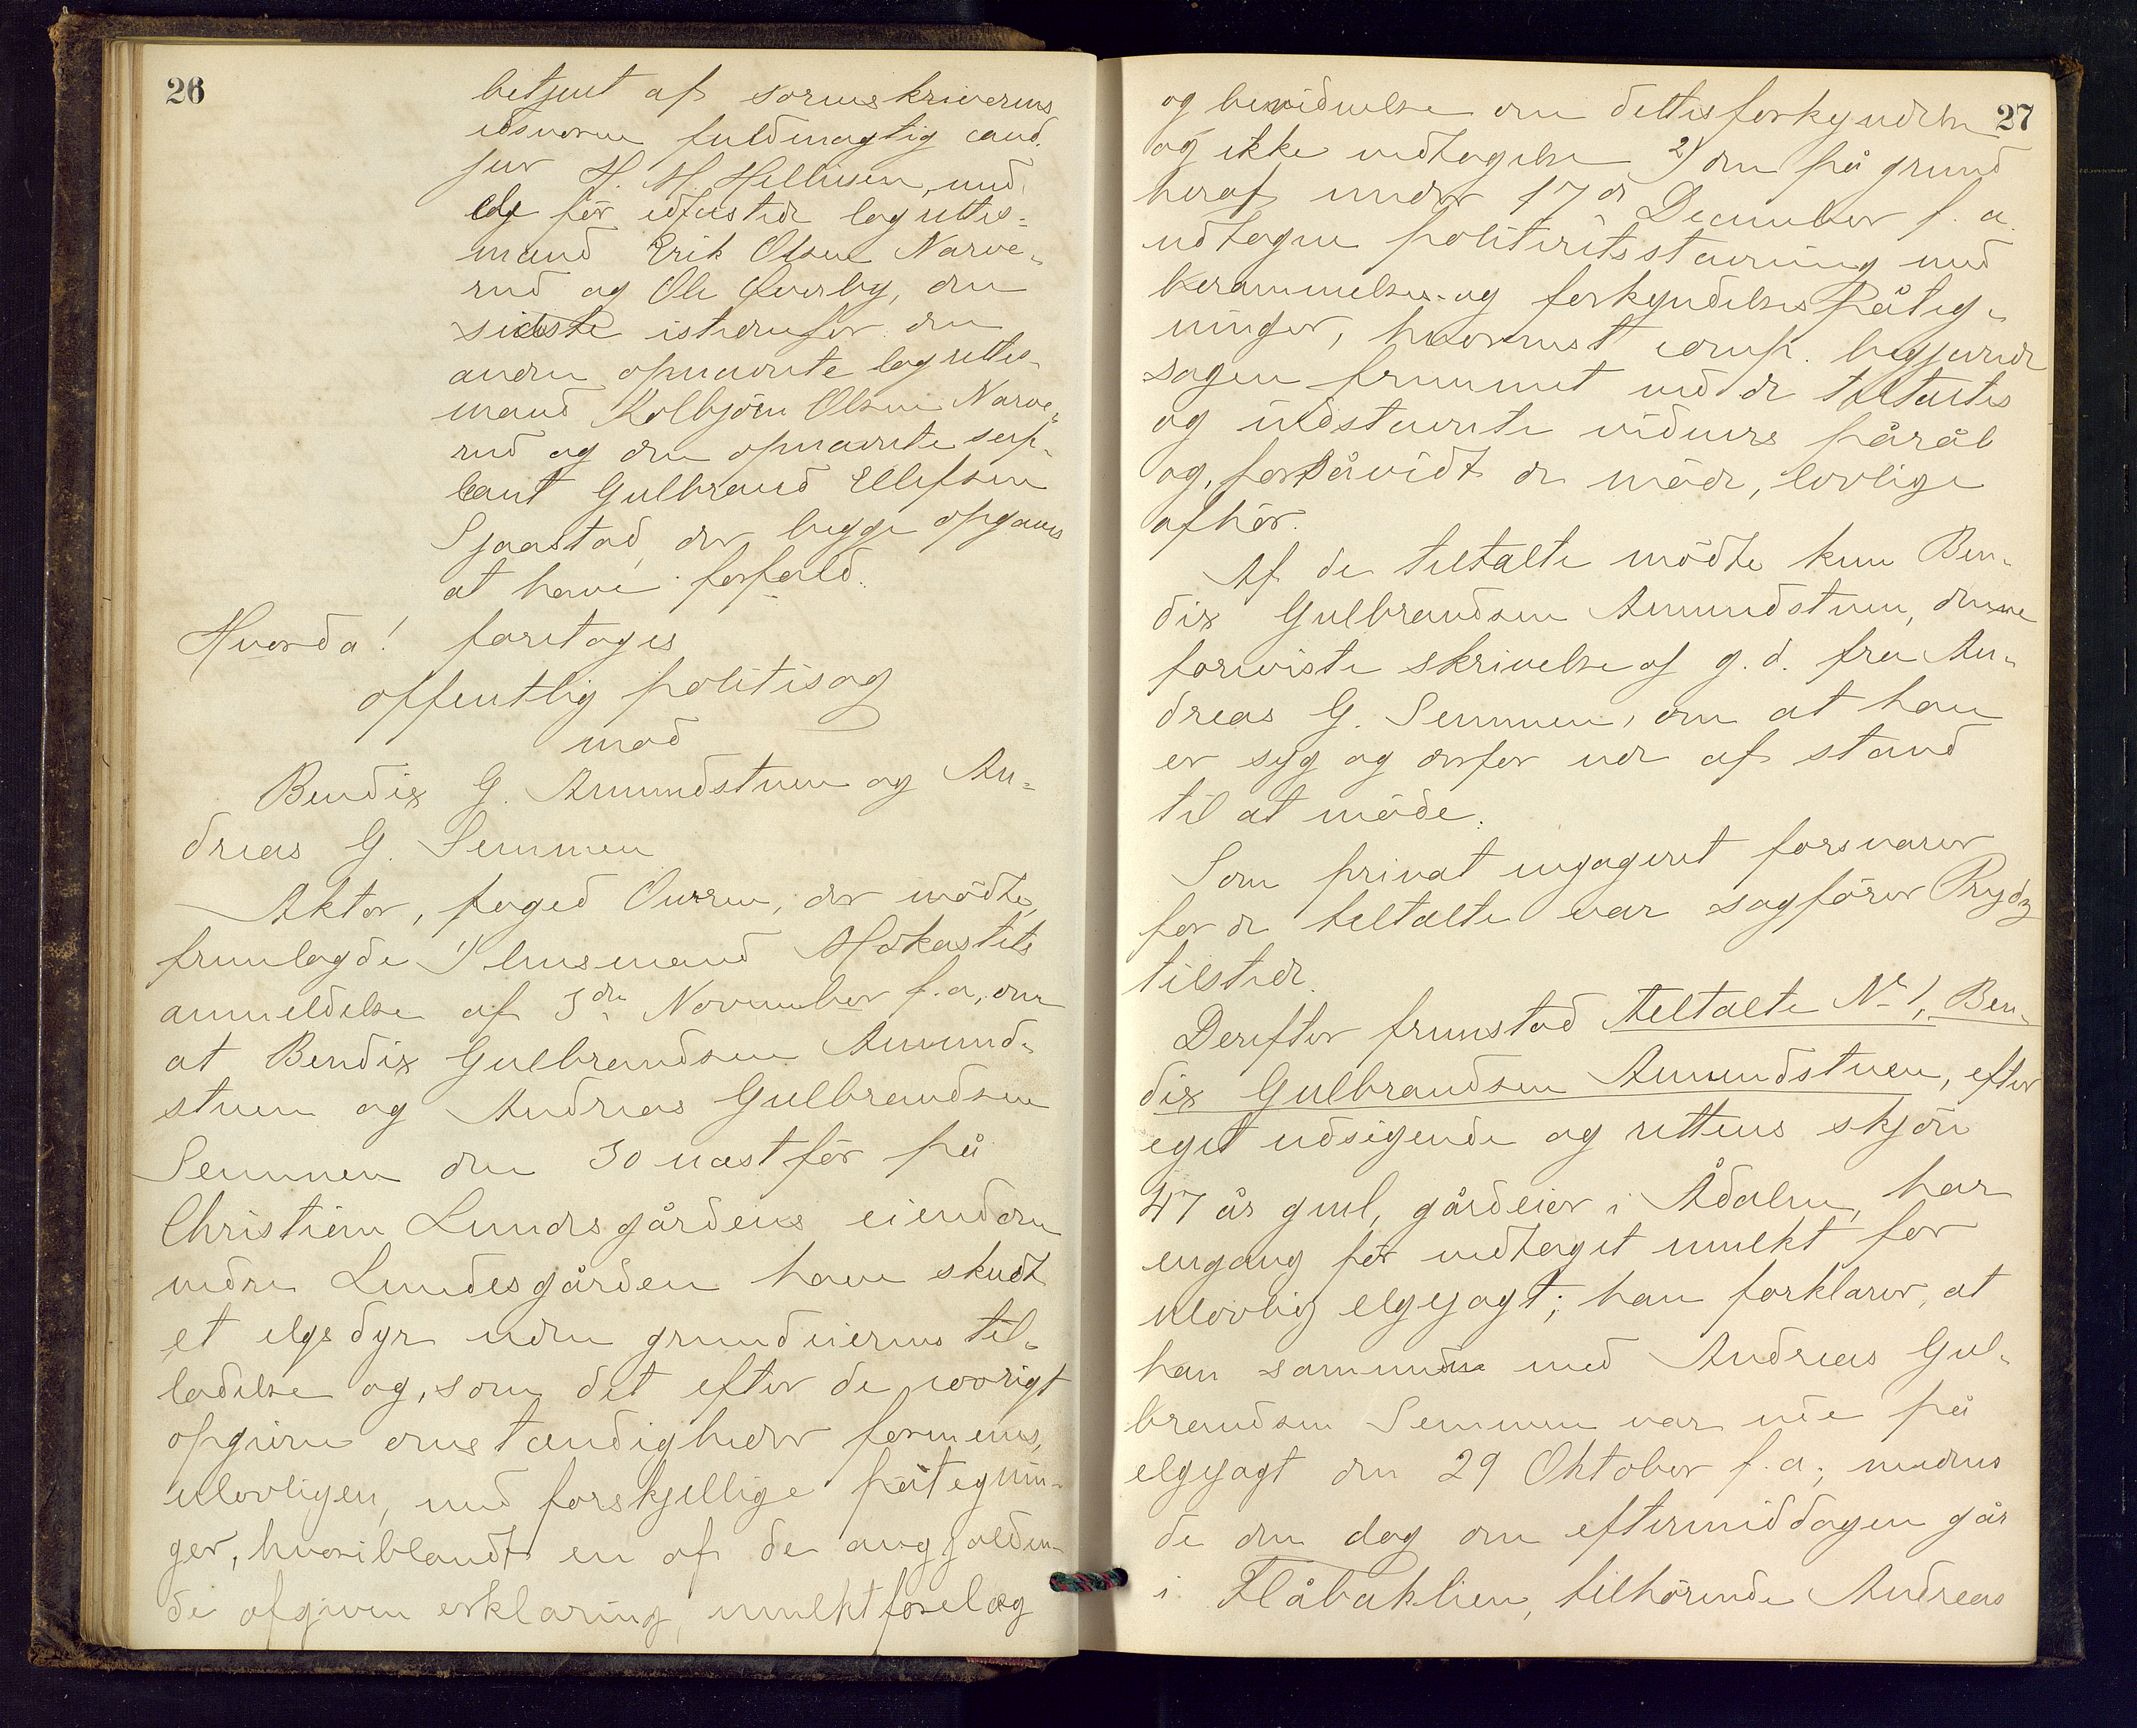 26
betjent af sorenskriverens
edsvorne fuldmægtig cand.
jur H. M. Hellesen, med
og før edfæstede lagrettes-
mænd Erik Olsen Narve-
rud og Ole Qverby, den
sidste istedenfor den
anden opnævnte lagrettes-
mand Kolbjörn Olsen Narve-
rud og den opnævnte sup-
leant Gulbrand Ellefsen
Sjaastad, der begge opgaves
at have forfald.
Hvorda! foretoges
offentlig politisag
mod
Bendix G. Amundstuen og An-
dreas G. Semmen
Aktor, foged Ourren, der mödte,
fremlagde 1) husmand Mokastets
anmeldelse af 3die November f.a., om
at Bendix Gulbrandsen Amund-
stuen og Andreas Gulbrandsen
Semmen den 30 næstför på
Christian Lundesgårdens eiendom
nedre Lundesgården have skudt
et elgsdyr uden grundeierens til-
ladelse og, som det efter de iövrigt
opgivne omstændigheder formenes,
ulovligen, med forskjellige påtegnin-
ger, hvoriblandt en af de angjælden-
de afgiven erklæring, mulktforelæg
27
og bevidnelse om dettes forkyndelse
og ikke vedtagelse 2) den på grund
heraf under 17de December f. a.
udtagne politiretsstævning med
berammelses- og forkyndelsespåteg-
ninger, hvornæst comp. begjærede
sagen fremmet ved de tiltaltes
og indstævnte vidners påråb
og, forsåvidt de möde, lovlige
afhör.
Af de tiltalte mödte kun Ben-
dix Gulbrandsen Amundstuen, denne
foreviste skrivelse af g. d. fra An-
dreas G. Semmen, om at han
er syg og derfor ude af stand
til at möde.
Som privat engageret forsvarer
for de tiltalte var sagförer Prydz
tilstede.
Derefter fremstod tiltalte No 1, Ben-
dix Gulbrandsen Amundstuen, efter
eget udsigende og rettens skjön
47 år gml, gårdeier i Ådalen, har
engang för vedtaget mulkt for
ulovlig elgsjagt; han forklarer, at
han sammen med Andreas Gul-
brandsen Semmen var ude på
elgsjagt den 29 Oktober f. a.; medens
de den dag om eftermiddagen går
i Flåbaklien, tilhörende Andreas